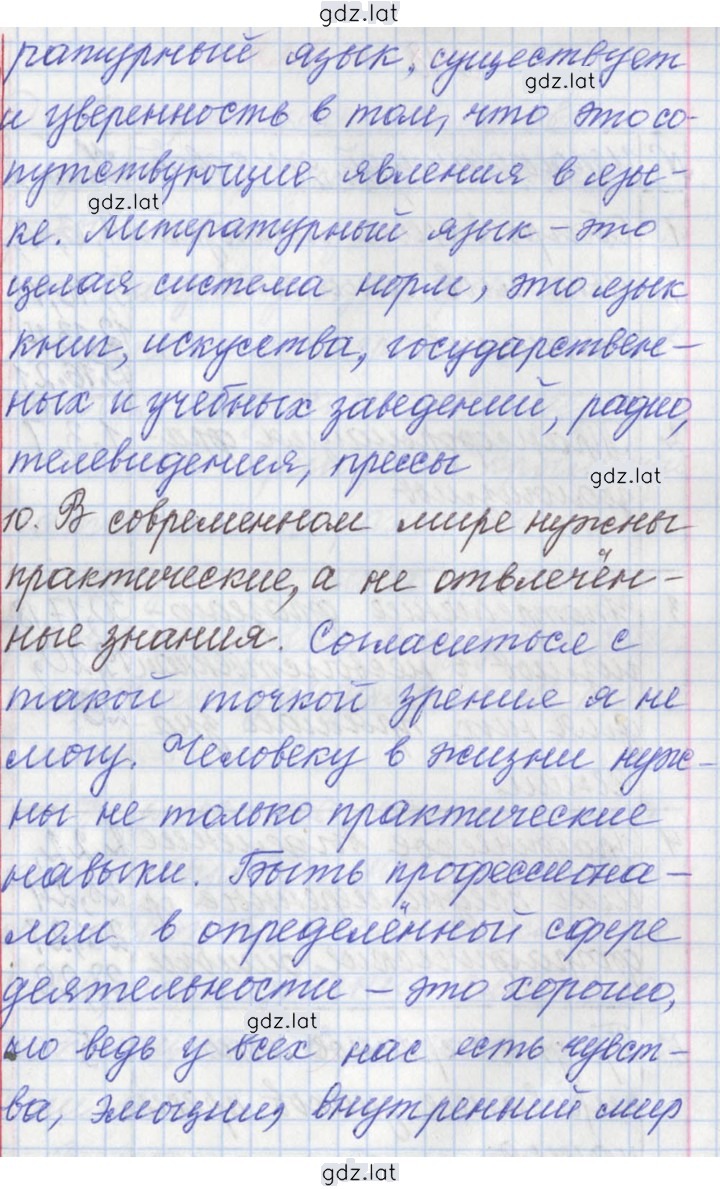 gdz.lat
ратурный язык, существует
gdz.lat
и уверенность в том, что это со-
путствующие явления в язы-
gdz.lat
ке. Литературный язык - это
целая система норм, это язык
книг, искусства, государствен-
ных и учебных заведений, радио,
телевидения, прессы
gdz.lat
10. В современном мире нужны
практические, а не отвлечён-
ные знания. Согласиться с
такой точкой зрения я не
могу. Человеку в жизни нуж-
ны не только практические
навыки. Быть профессиона-
лом в определённой сфере
деятельности - это хорошо,
gdz.lat
но ведь у всех нас есть чувст-
ва, эмоции, внутренний мир
gdz.lat